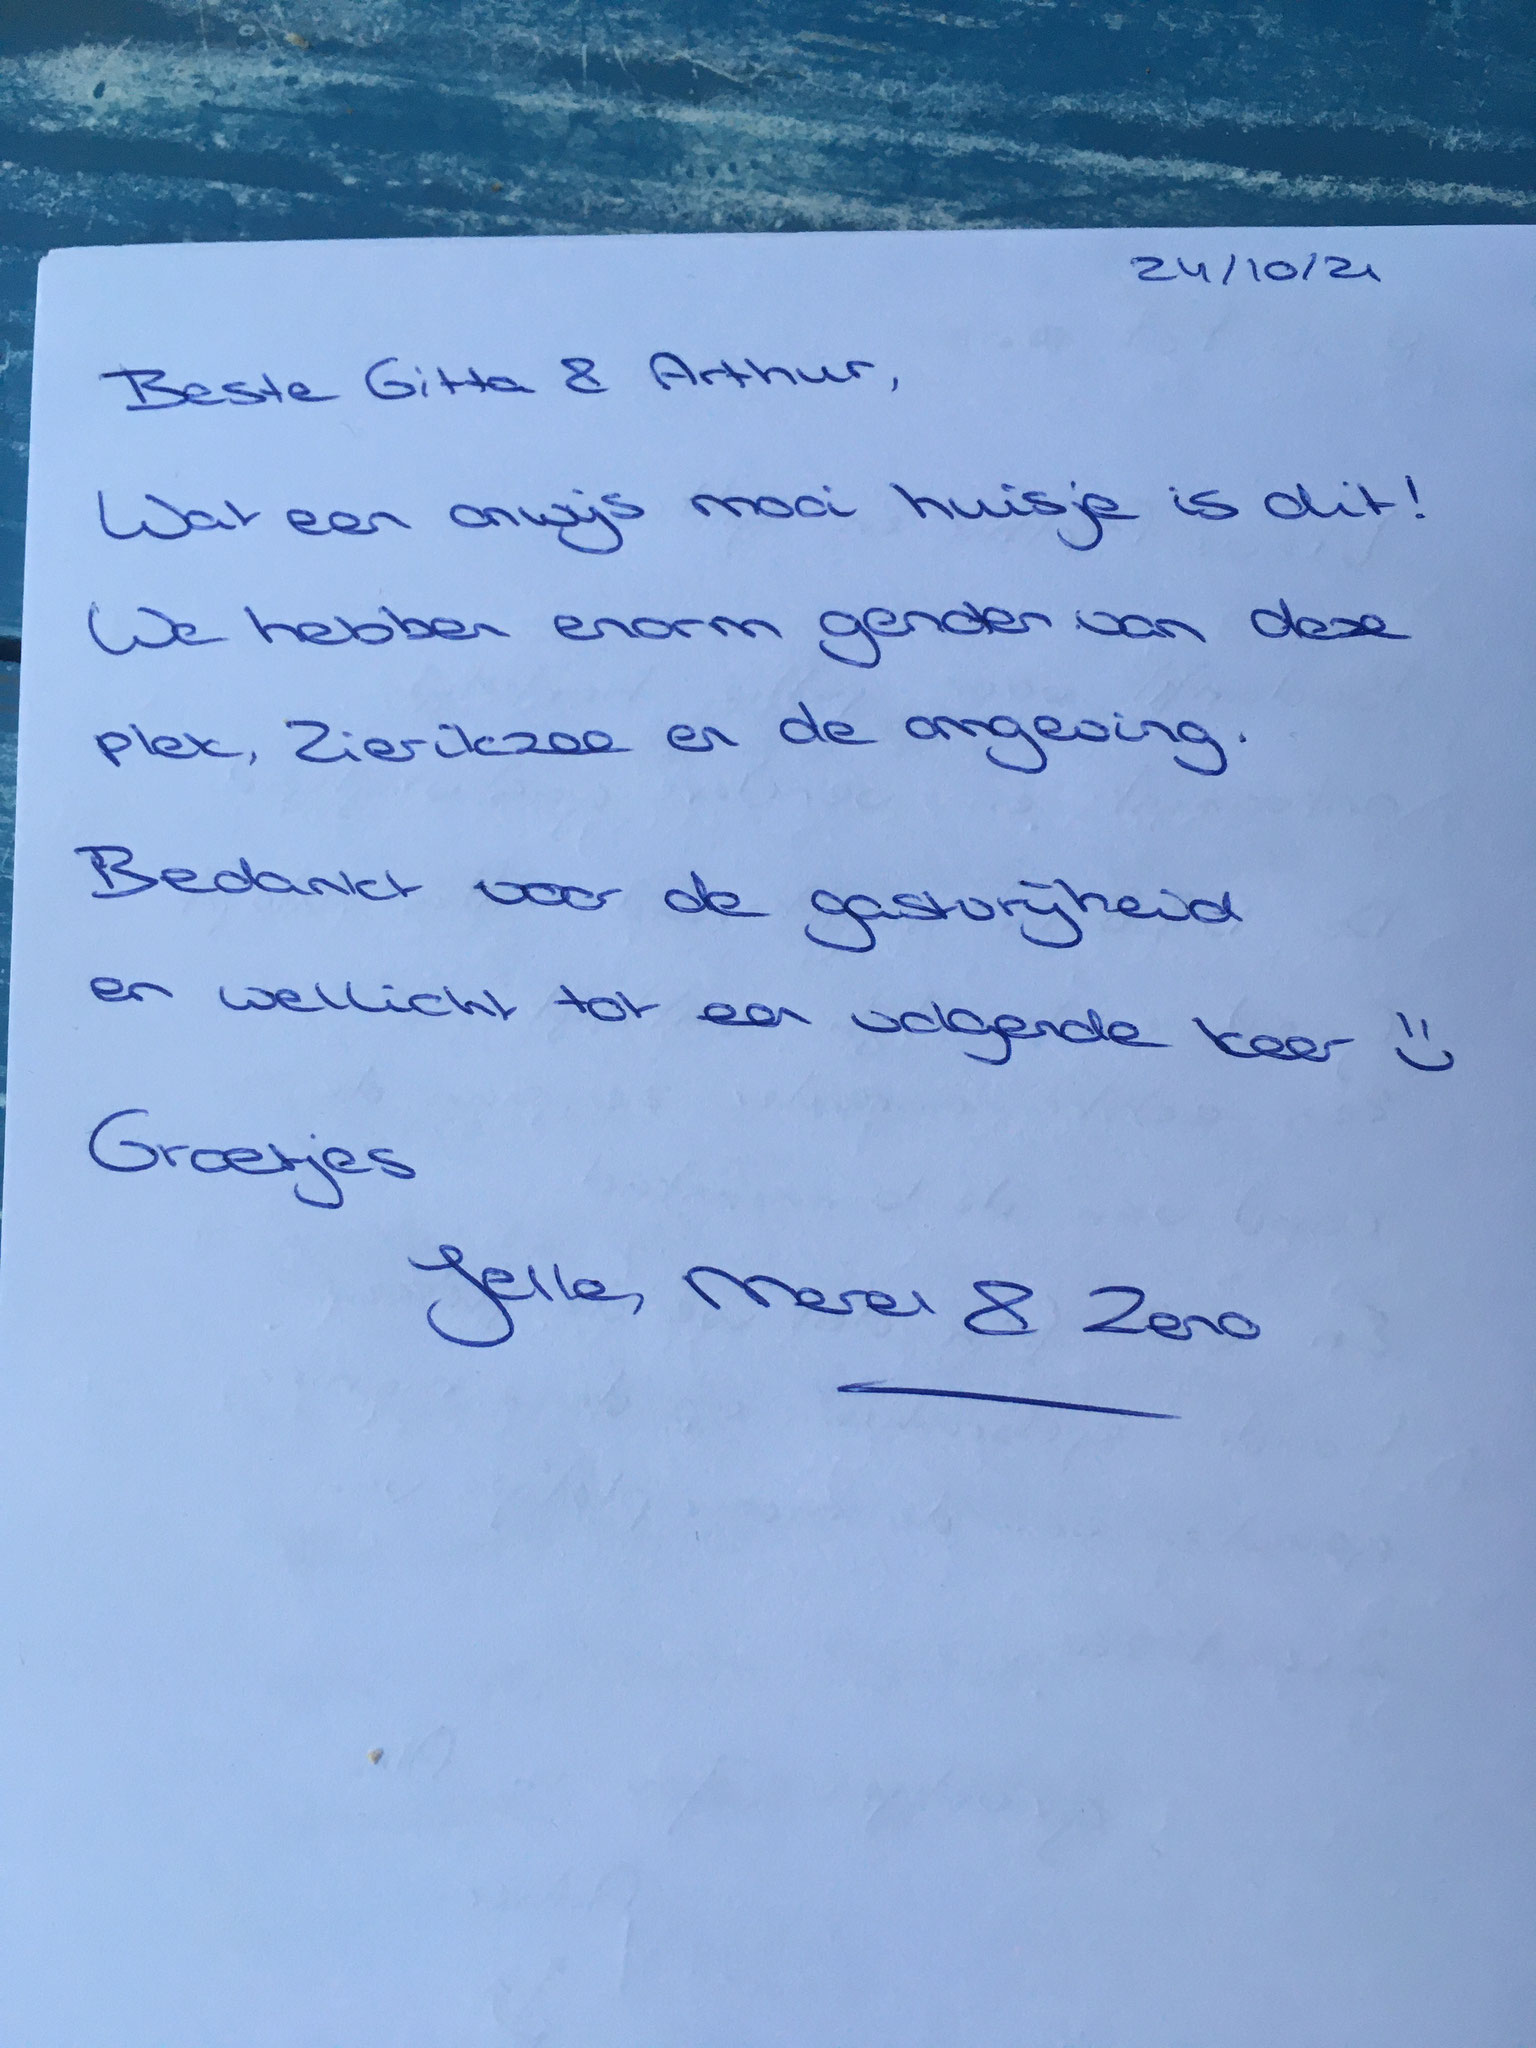 24/10/21
Beste Gitta & Arthur,
Wat een onwijs mooi huisje is dit!
We hebben enorm genoten van deze
plek, Zierikzee en de omgeving.
Bedankt voor de gastvrijheid
en wellicht tot een volgende keer :)
Groetjes
Jelle, Merel & Zeno